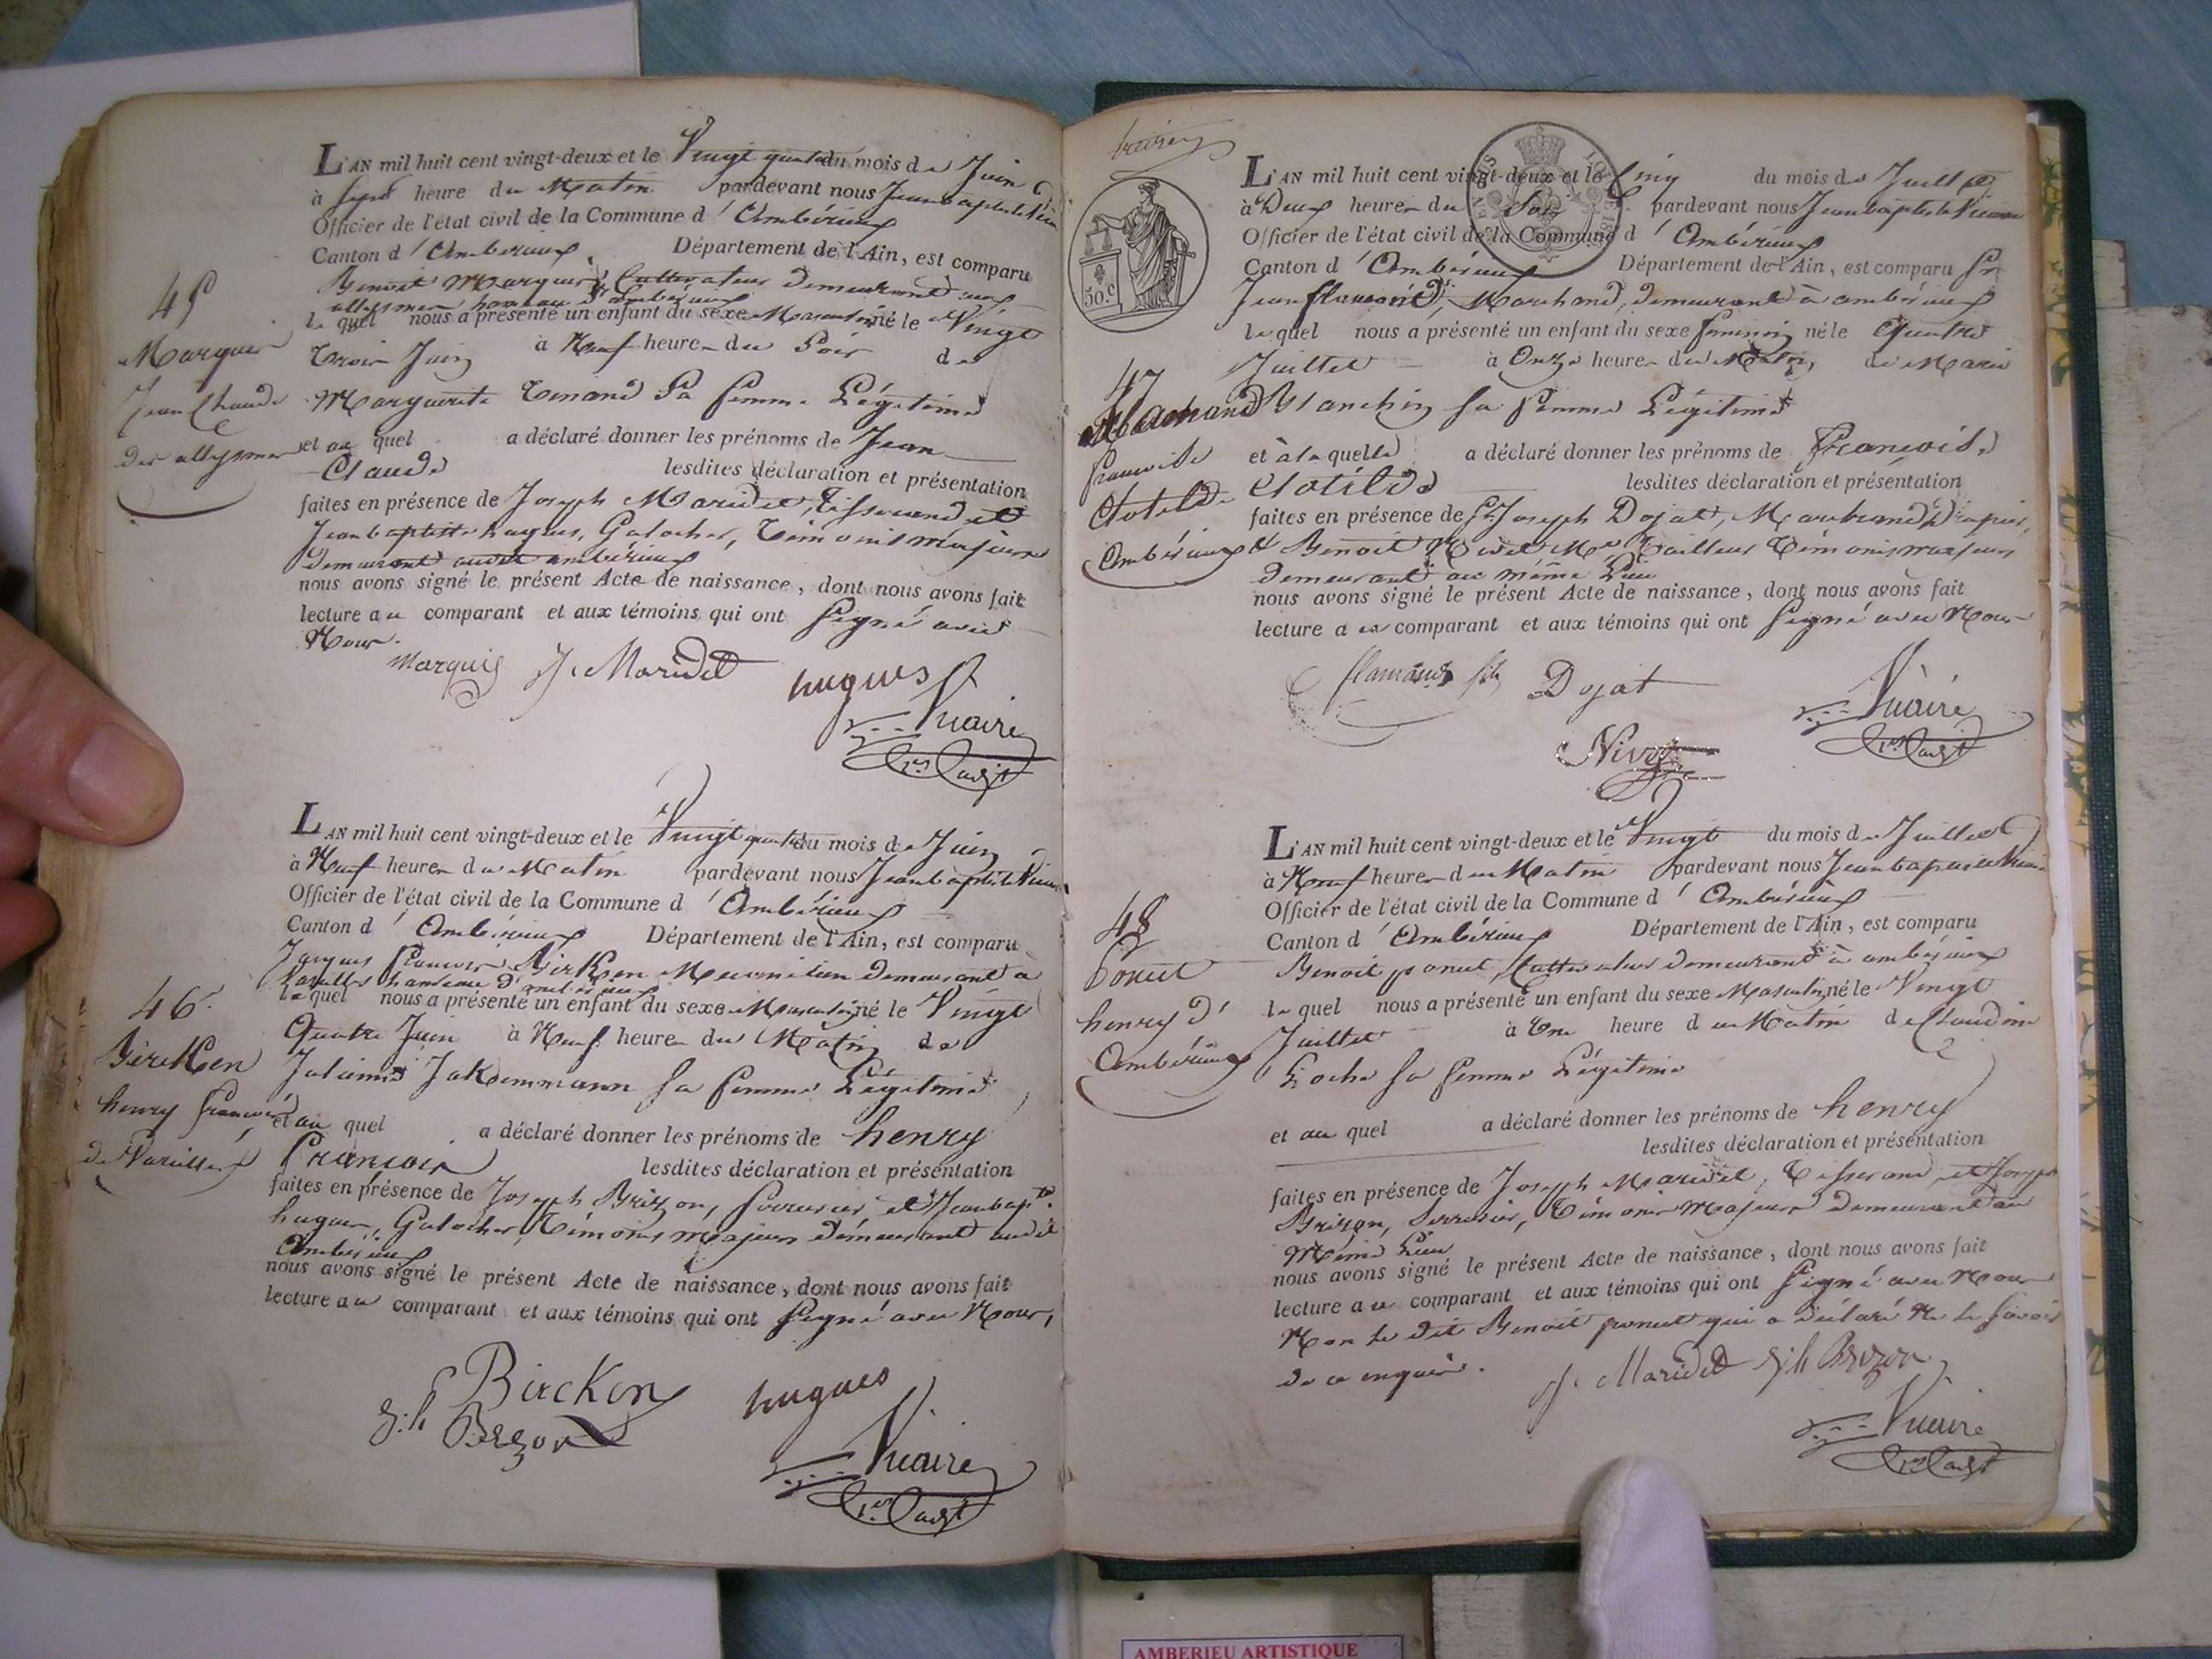 45
Marquis
Jean Claude
des allymes
L'AN mil huit cent vingt-deux et le Vingt quatre du mois de Juin
à Sept heure du Matin pardevant nous Jean baptiste Vicaire
Officier de l'état civil de la Commune d'Ambérieux
Canton d'Ambérieux Département de l'Ain, est comparu
Benoit Marquis, Cultivateur demeurant aux
allymes hameau d'ambérieux
le quel nous a présenté un enfant du sexe Masculin né le Vingt
Trois Juin à Neuf heures du Soir de
Marguerite Tenand Sa femme Légitime
et au quel a déclaré donner les prénoms de Jean
Claude lesdites déclaration et présentation
faites en présence de Joseph Maridet, Tisserand et
Jean baptiste hugues, Galocher, Témoins majeurs
demeurant audit ambérieux
nous avons signé le présent Acte de naissance, dont nous avons fait
lecture au comparant et aux témoins qui ont Signé avec
Nous.
Marquis J. Maridet hugues
Vicaire
46
Bircken
henry francois
de Vareilles
L'AN mil huit cent vingt-deux et le Vingt quatre du mois de Juin
à Neuf heures du Matin pardevant nous Jean baptiste Vicaire
Officier de l'état civil de la Commune d'Ambérieux
Canton d'Ambérieux Département de l'Ain, est comparu
Jacques francois Bircken Mecanicien demeurant à
Vareilles hameau d'ambérieux
le quel nous a présenté un enfant du sexe Masculin né le Vingt
Quatre Juin à Neuf heures du Matin de
Julienne Jakemmann Sa femme Légitime
et au quel a déclaré donner les prénoms de henry
francois lesdites déclaration et présentation
faites en présence de Joseph Brizon, Serrurier, et Jean bapte
hugues, Galocher, Témoins majeurs demeurant audit
Ambérieux
nous avons signé le présent Acte de naissance, dont nous avons fait
lecture au comparant et aux témoins qui ont Signé avec Nous,
Bircken hugues
Brizon
Vicaire
50.c
47
francoise
Clotilde
Ambérieux
L'AN mil huit cent vingt-deux et le Cinq du mois de Juillet
à Deux heures du Soir pardevant nous Jean baptiste Vicaire
Officier de l'état civil de la Commune d'Ambérieux
Canton d'Ambérieux Département de l'Ain, est comparu Sr
Jean flamand, Marchand, demeurant à ambérieux
le quel nous a présenté un enfant du sexe feminin né le Quatre
Juillet à Onze heures du Matin, de Marie
Blanchin Sa femme Légitime
et à la quelle a déclaré donner les prénoms de francoise
Clotilde lesdites déclaration et présentation
faites en présence de Sr Joseph Dojat, Marchand Drapier,
& Benoit Nivet Md Tailleur Témoins majeurs
demeurant au même Lieu
nous avons signé le présent Acte de naissance, dont nous avons fait
lecture au comparant et aux témoins qui ont Signé avec Nous
flamand fils Dojat
Vicaire
48
Poncet
henry d'
Ambérieux
L'AN mil huit cent vingt-deux et le Vingt du mois de Juillet
à Neuf heures du Matin pardevant nous Jean baptiste Vicaire
Officier de l'état civil de la Commune d'Ambérieux
Canton d'Ambérieux Département de l'Ain, est comparu
Benoit poncet, Cultivateur demeurant à ambérieux
le quel nous a présenté un enfant du sexe Masculin, né le Vingt
Juillet à Une heure du Matin de Claudine
Sa femme Légitime
et au quel a déclaré donner les prénoms de henry
lesdites déclaration et présentation
faites en présence de Joseph Maridet, Tisserand, et Joseph
Brizon, Serrurier, Témoins Majeurs demeurant au
Même Lieu
nous avons signé le présent Acte de naissance, dont nous avons fait
lecture au comparant et aux témoins qui ont Signé avec Nous
Non le dit Benoit poncet qui a déclaré Ne le Savoir
de ce enquis.
J. Maridet Brizon
Vicaire
AMBERIEU ARTISTIQUE